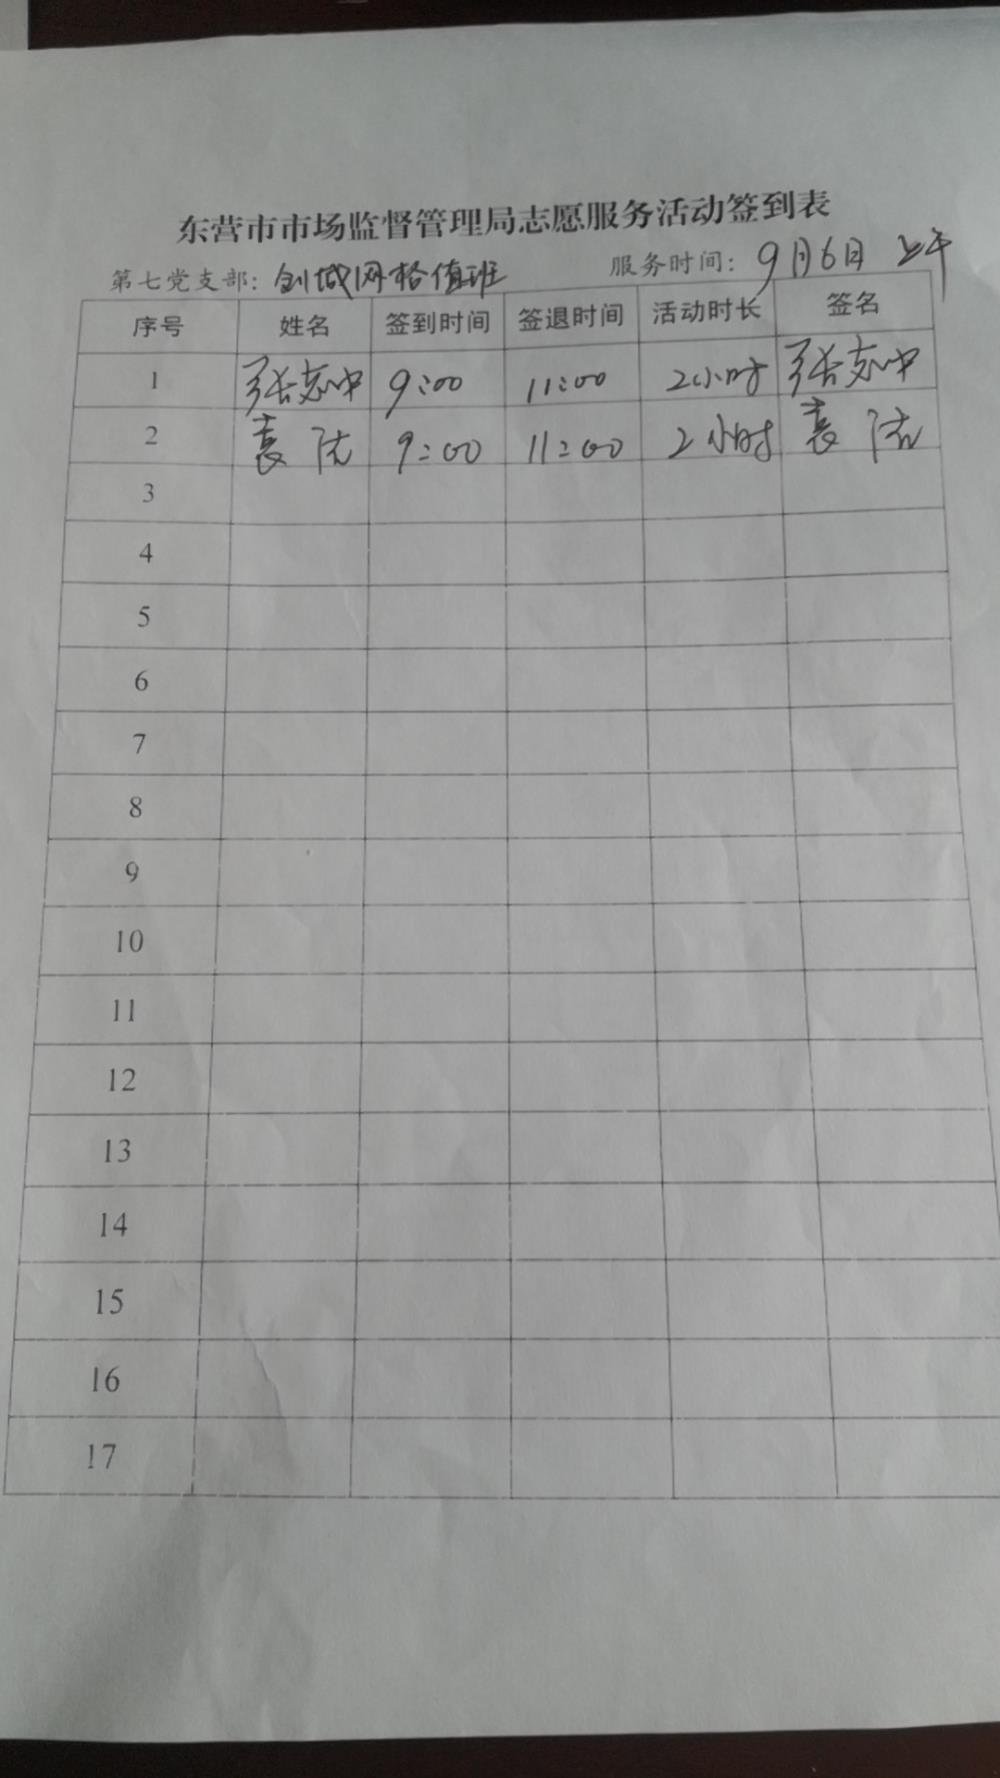 东营市市场监督管理局志愿服务活动签到表
第七党支部：创城网格值班 服务时间：9月6日 上午
序号 姓名 签到时间 签退时间 活动时长 签名
1 张志中 9:00 11:00 2小时 张志中
2 袁 9:00 11:00 2小时 袁
3
4
5
6
7
8
9
10
11
12
13
14
15
16
17